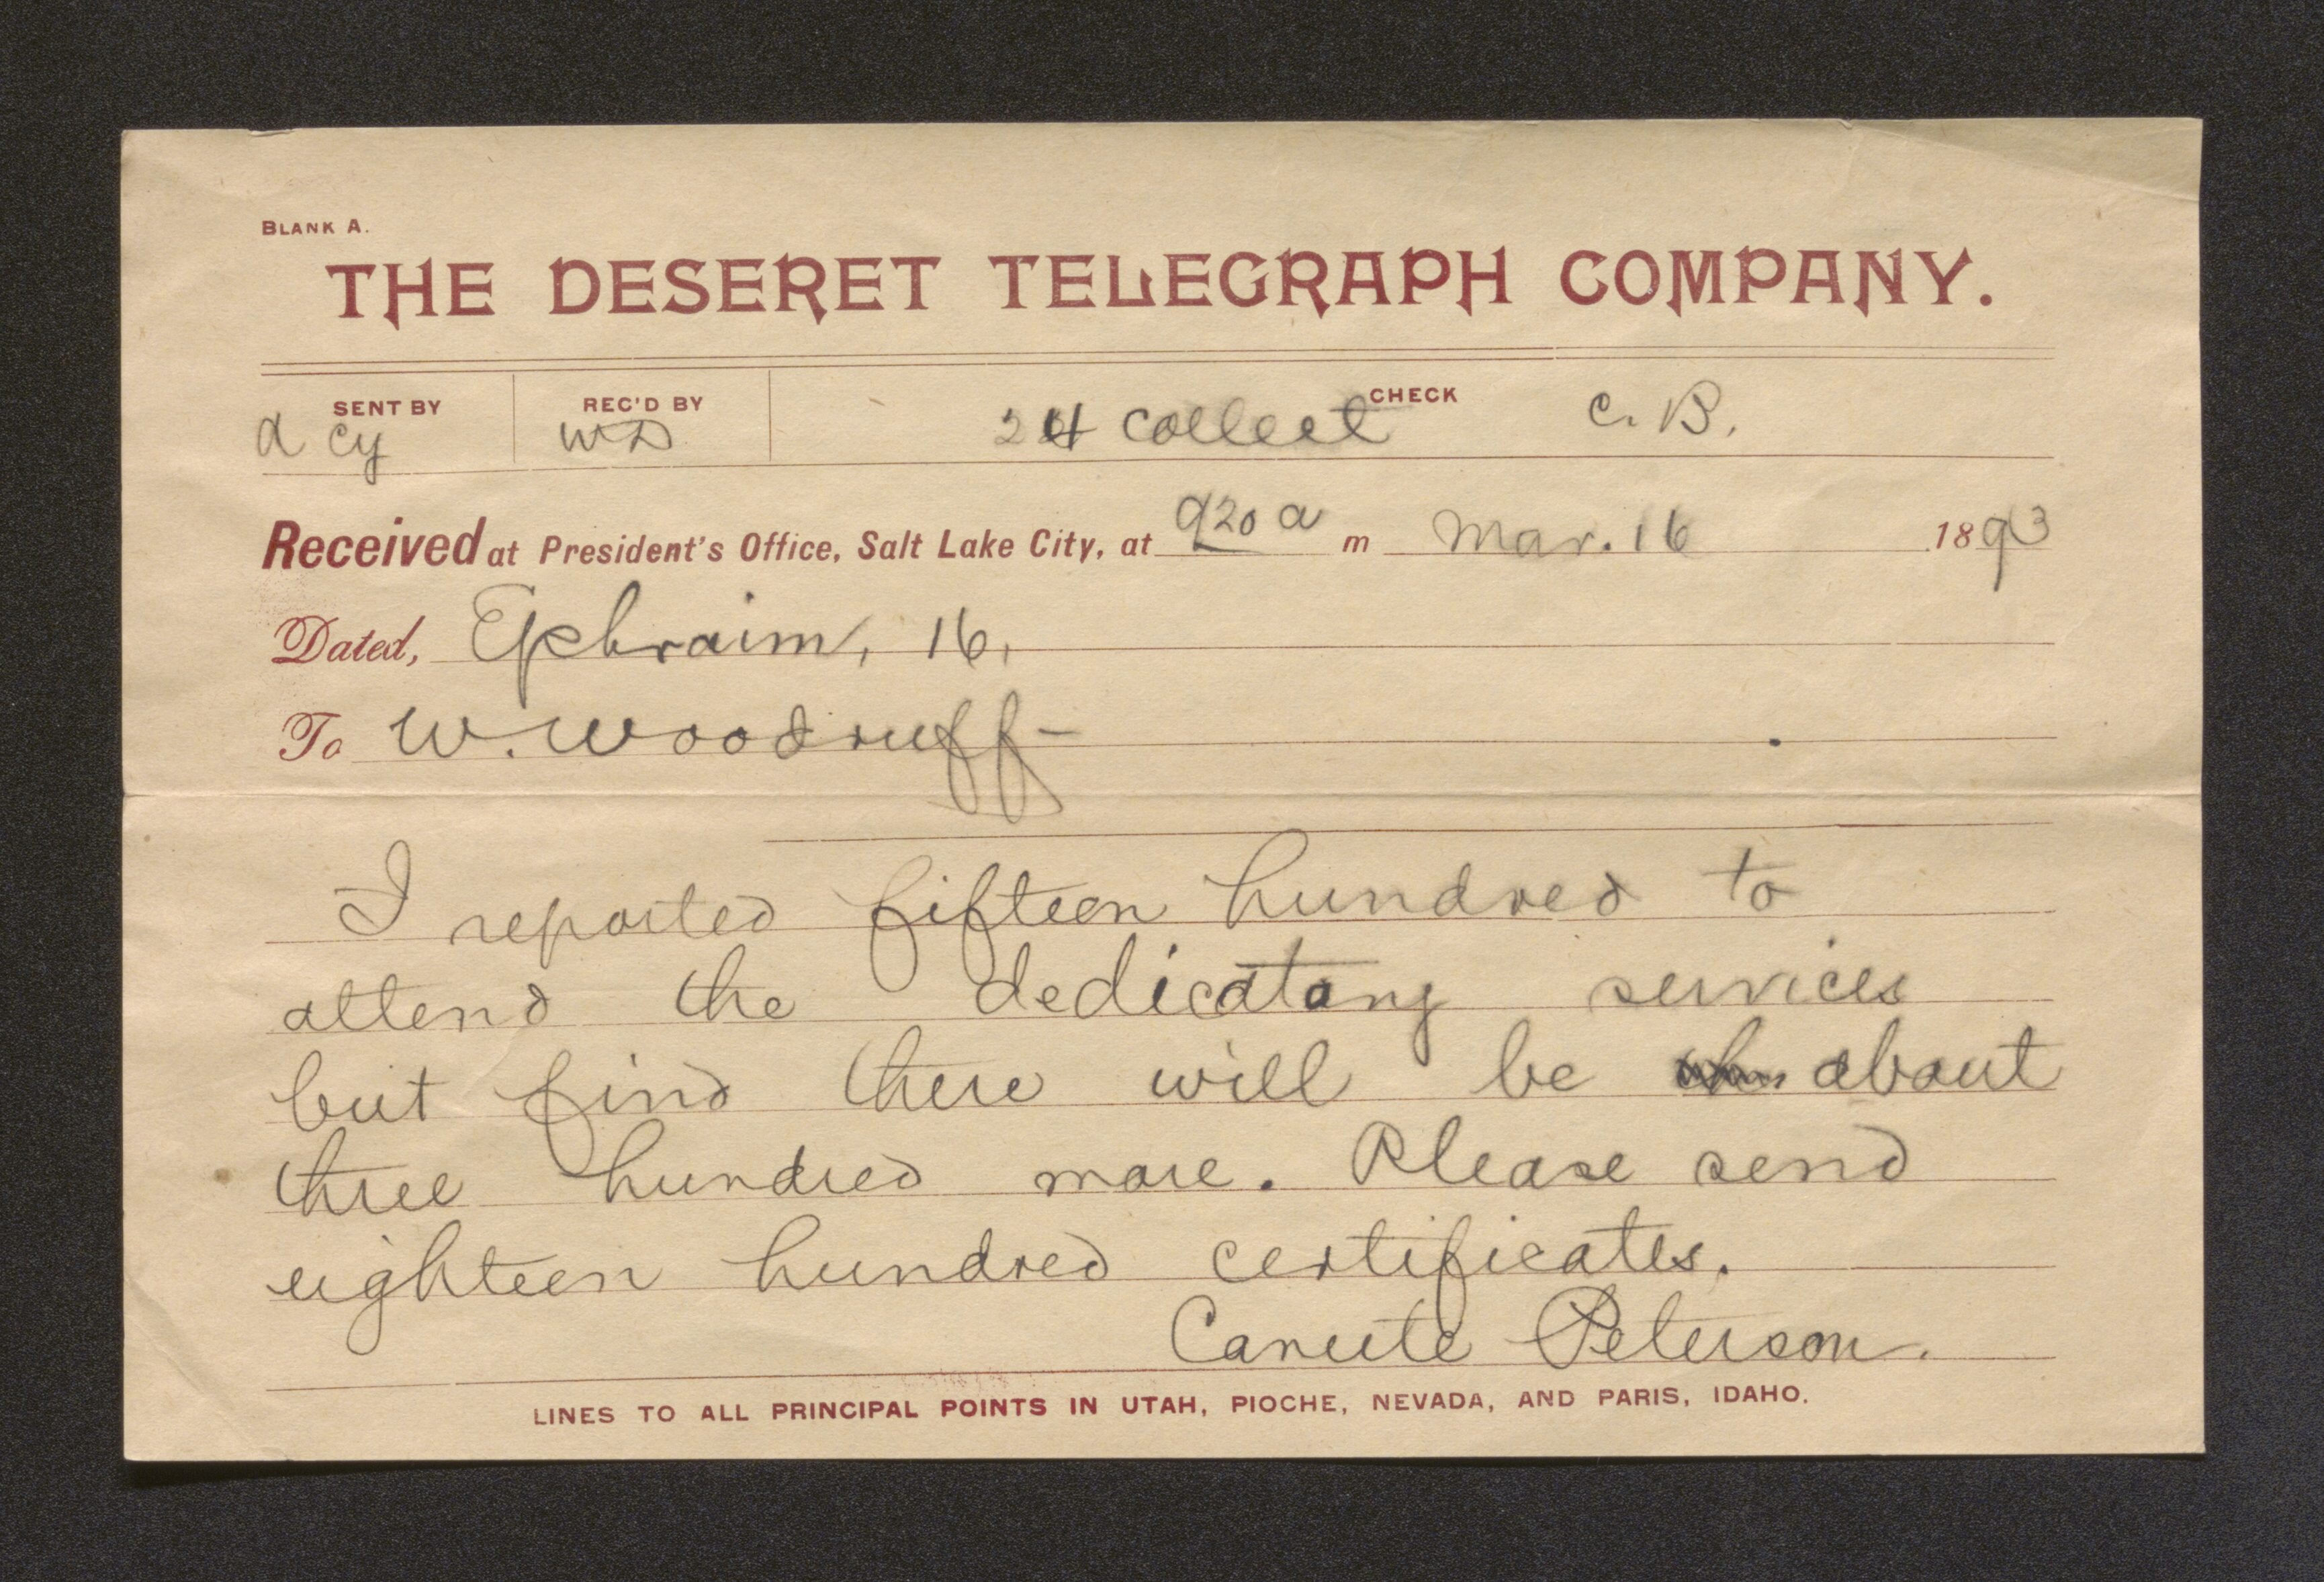 BLANK A.
THE DESERET TELEGRAPH COMPANY.
SENT BY REC'D BY CHECK
a cy WD 24 collect C. B.
Received at President's Office, Salt Lake City, at 920 a m Mar. 16 1893
Dated, Ephraim, 16,
To W. Woodruff-
I reported fifteen hundred to
attend the dedicatory services
but find there will be about
three hundred more. Please send
eighteen hundred certificates.
Canute Peterson.
LINES TO ALL PRINCIPAL POINTS IN UTAH, PIOCHE, NEVADA, AND PARIS, IDAHO.